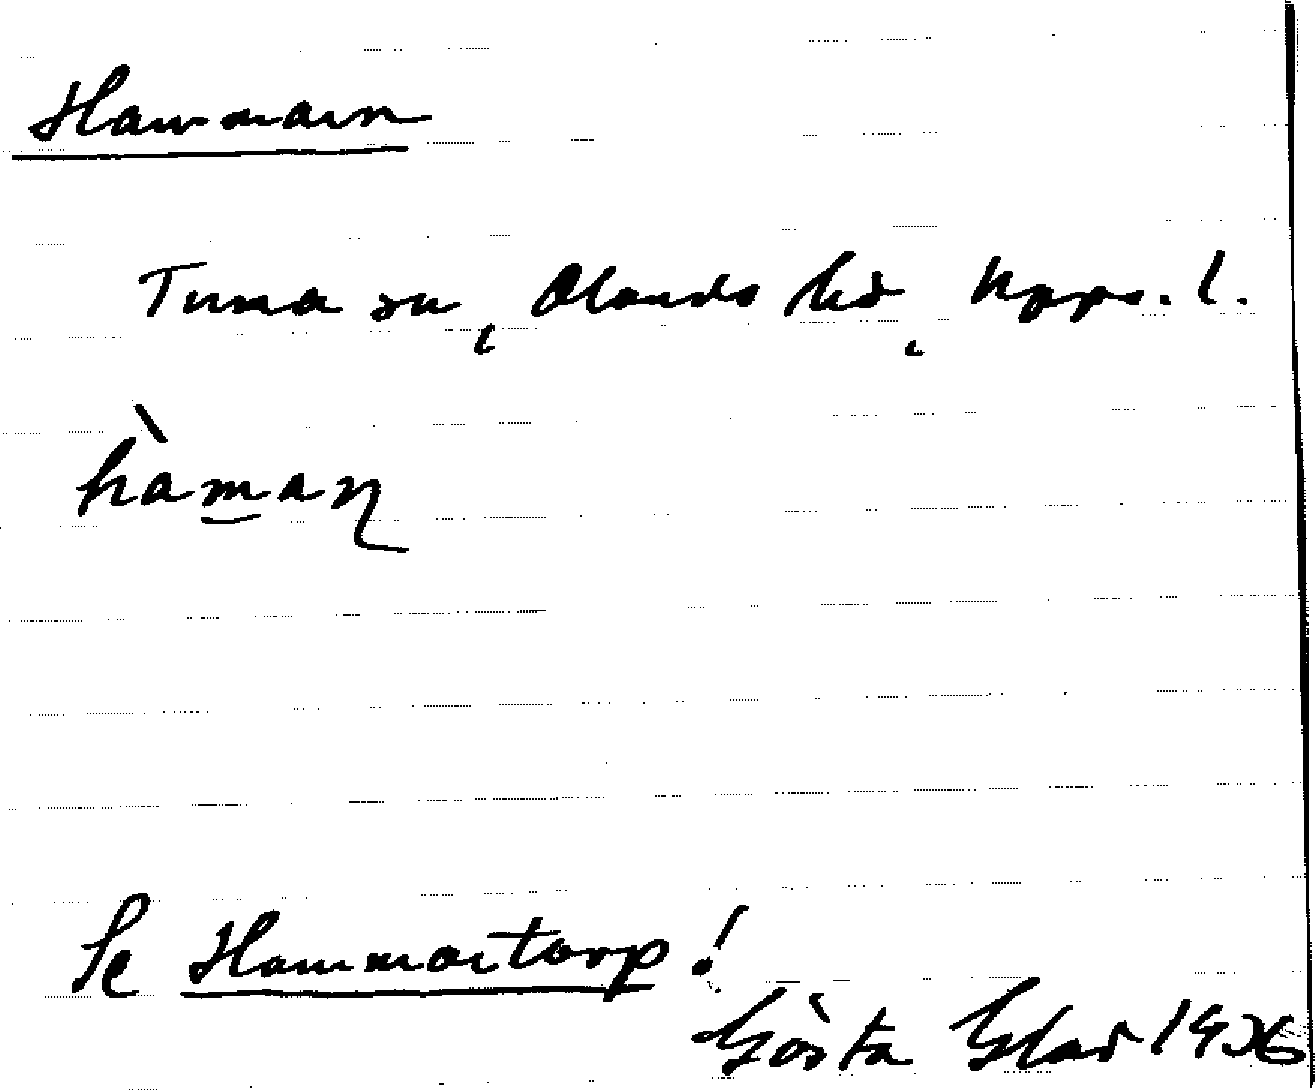 Hammarn
Tuna sn, Olands hd, Upps. l.
hàmaɳ
Se Hammartorp!
Gösta